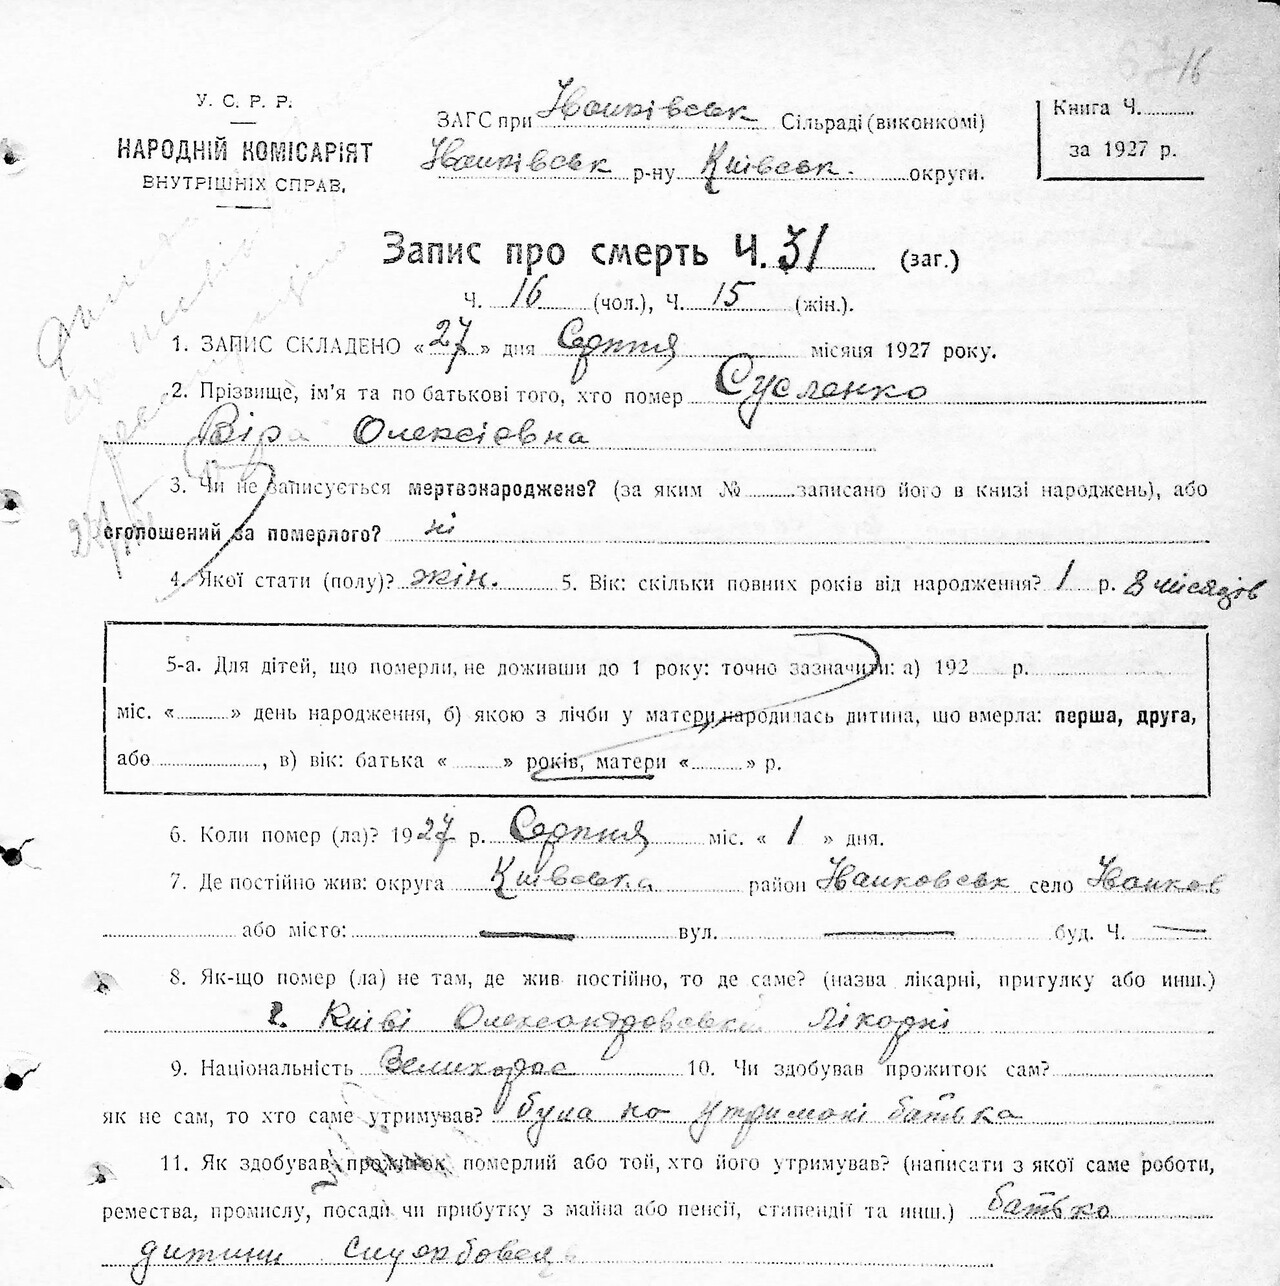 16
У. С. Р. Р.
НАРОДНІЙ КОМІСАРІЯТ
ВНУТРІШНІХ СПРАВ.
ЗАГС при Іванківськ Сільраді (виконкомі)
Іванківськ р-ну Київськ. округи.
Книга Ч.
за 1927 р.
Запис про смерть Ч. 31 (заг.)
Ч. 16 (чол.), Ч. 15 (жін.).
1. ЗАПИС СКЛАДЕНО «27» дня Серпня місяця 1927 року.
2. Прізвище, ім'я та по батькові того, хто помер Сусленко
Віра Олексієвна
3. Чи не записується мертвонароджене? (за яким № записано його в книзі народжень), або
оголошений за померлого? ні
4. Якої стати (полу)? жін. 5. Вік: скільки повних років від народження? 1 р. 8 місяців
5-а. Для дітей, що померли, не доживши до 1 року: точно зазначити: а) 192 р.
міс. « » день народження, б) якою з лічби у матери народилась дитина, що вмерла: перша, друга,
або , в) вік: батька « » років, матери « » р.
6. Коли помер (ла)? 1927 р. Серпня міс. « 1 » дня.
7. Де постійно жив: округа Київська район Іванковськ село Іванков
або місто: — вул. — буд. Ч. —
8. Як-що помер (ла) не там, де жив постійно, то де саме? (назва лікарні, притулку або инш.)
Київі Олександровській лікарні
9. Національність Великорос 10. Чи здобував прожиток сам?
як не сам, то хто саме утримував? була на утримані батька
11. Як здобував прожиток померлий або той, хто його утримував? (написати з якої саме роботи,
ремества, промислу, посади чи прибутку з майна або пенсії, стипендії та инш.) батько
дитини службовець